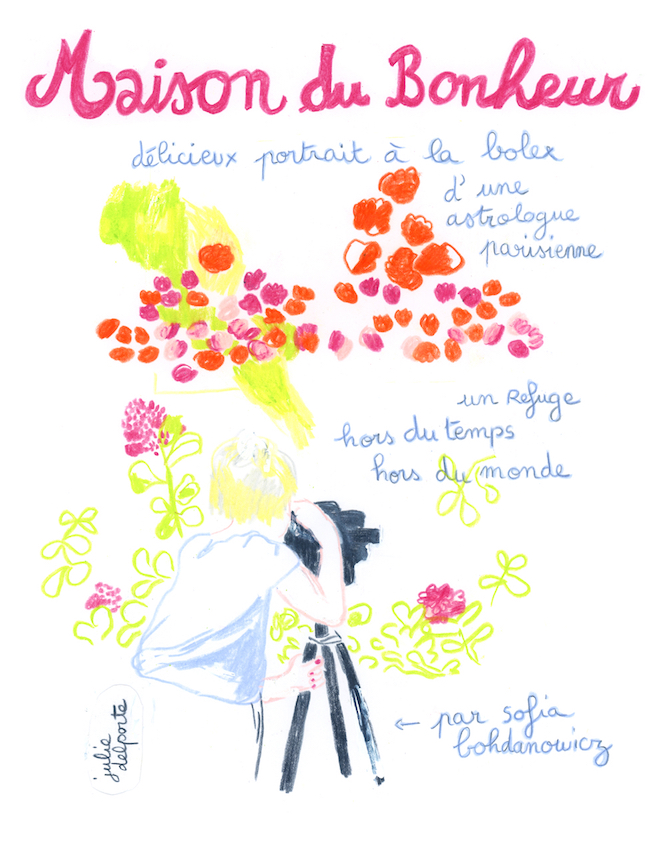 Maison du Bonheur
délicieux portrait à la bolex
d'une
astrologue
parisienne
un Refuge
hors du temps
hors du monde
← par sofia
bohdanowicz
julie
delporte